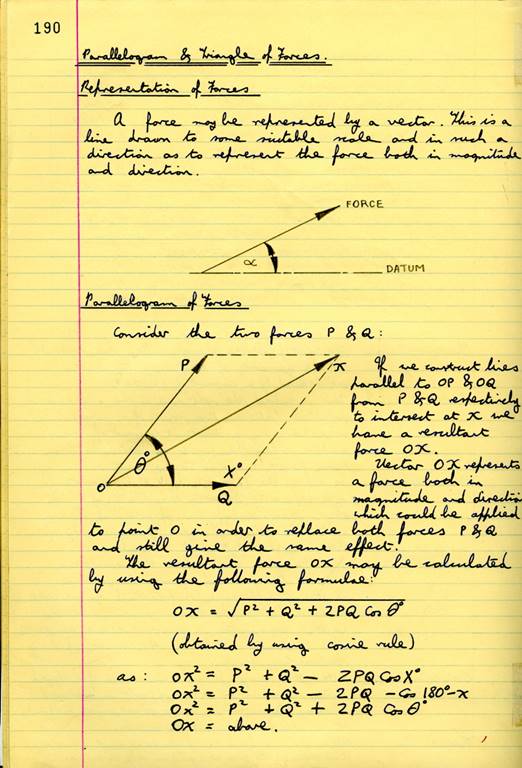 190
Parallelogram & Triangle of Forces.
Representation of Forces
A force may be represented by a vector. This is a
line drawn to some suitable scale and in such a
direction as to represent the force both in magnitude
and direction.
FORCE
α
DATUM
Parallelogram of Forces
Consider the two forces P & Q:
P
x
θ°
X°
O
Q
If we construct lines
parallel to OP & OQ
from P & Q respectively
to intersect at x we
have a resultant
force OX.
Vector OX represents
a force both in
magnitude and direction
which could be applied
to point O in order to replace both forces P & Q
and still give the same effect.
The resultant force OX may be calculated
by using the following formulae:
OX = √P² + Q² + 2PQ Cos θ°
(obtained by using cosine rule)
as: OX² = P² + Q² - 2PQ Cos X°
OX² = P² + Q² - 2PQ - Cos 180° - x
OX² = P² + Q² + 2PQ Cos θ°
OX = above.